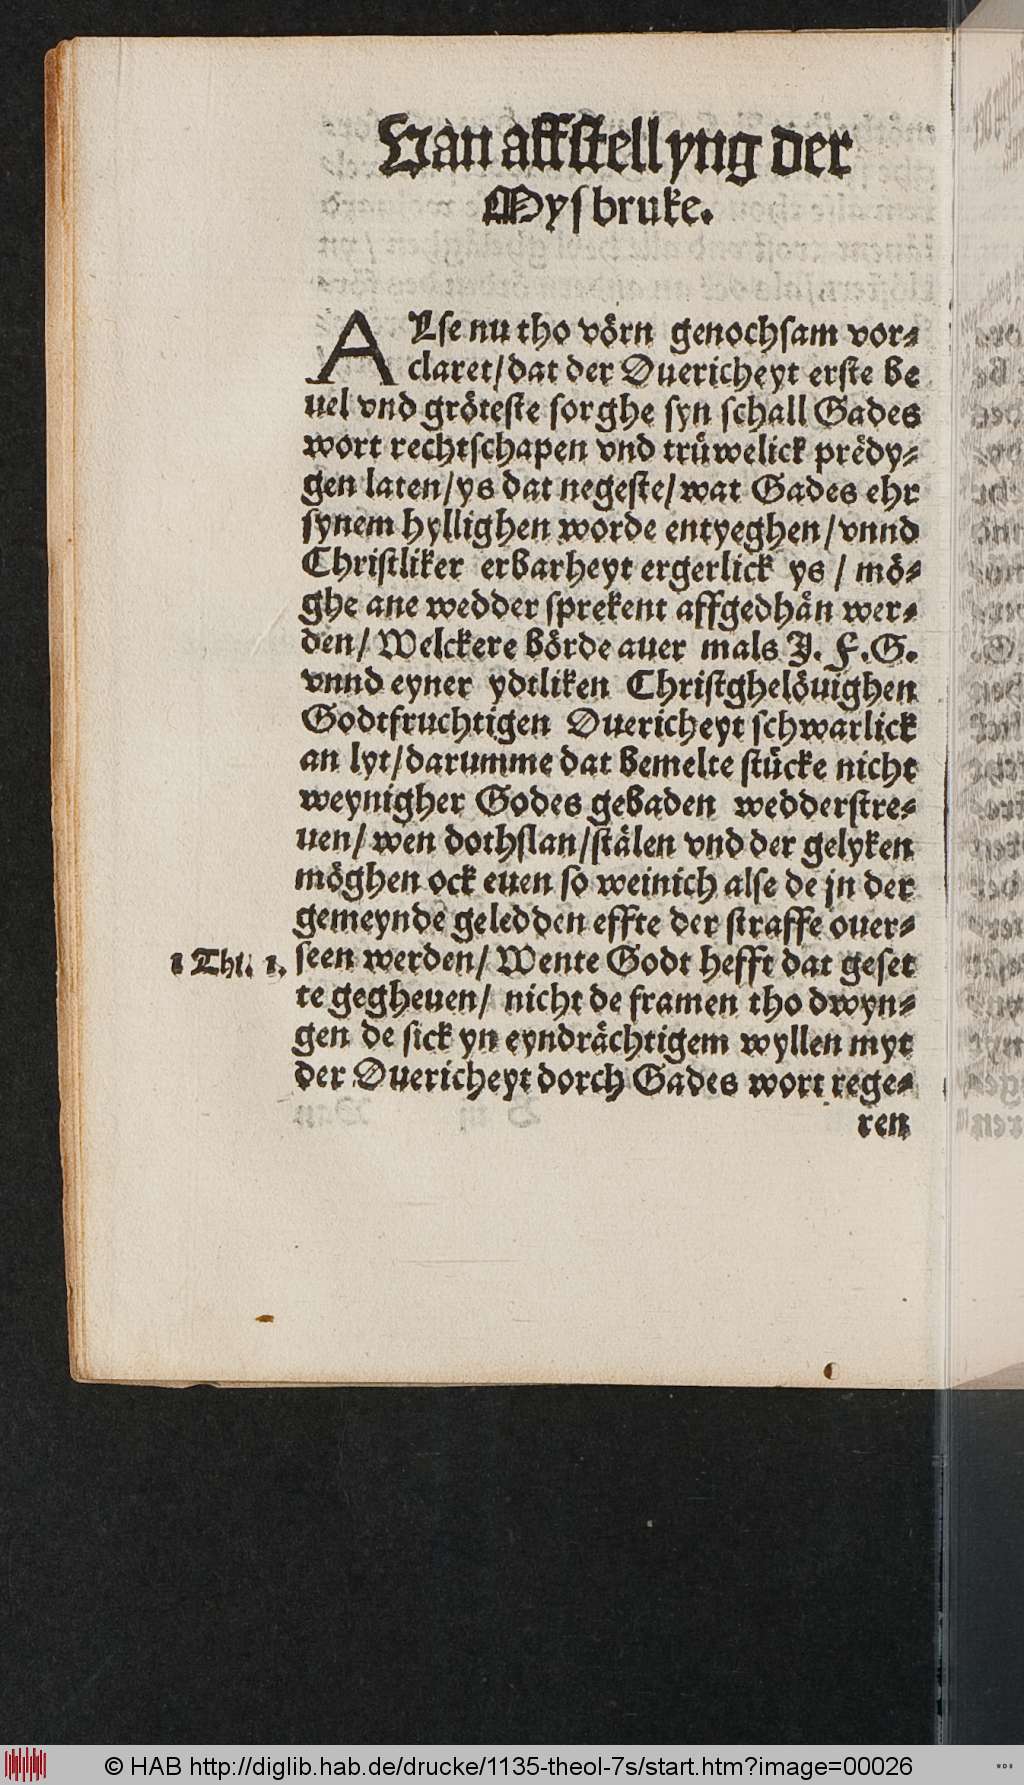 Van affstellyng der
Mysbruke.
ALse nu tho vörn genochsam vor-
claret/dat der Ouericheyt erste be
uel vnd gröteste sorghe syn schall Gades
wort rechtschapen vnd trüwelick predy-
gen laten/ys dat negeste/wat Gades ehr
synem hyllighen worde entyeghen/vnnd
Christliker erbarheyt ergerlick ys / mö-
ghe ane wedder sprekent affgedhän wer-
den/ Welckere börde auer mals J. F. G.
vnnd eyner ydtliken Christghelöuighen
Godtfruchtigen Ouericheyt schwarlick
an lyt/darumme dat bemelte stücke nicht
weynigher Godes gebaden wedderstre-
uen/ wen dothslan/stälen vnd der gelyken
möghen ock euen so weinich alse de jn der
gemeynde geledden effte der straffe ouer-
1 Thi. 1. seen werden/ Wente Godt hefft dat geset
te gegheuen/ nicht de framen tho dwyn-
gen de sick yn eyndrächtigem wyllen myt
der Ouericheyt dorch Gades wort rege-
ren
© HAB http://diglib.hab.de/drucke/1135-theol-7s/start.htm?image=00026